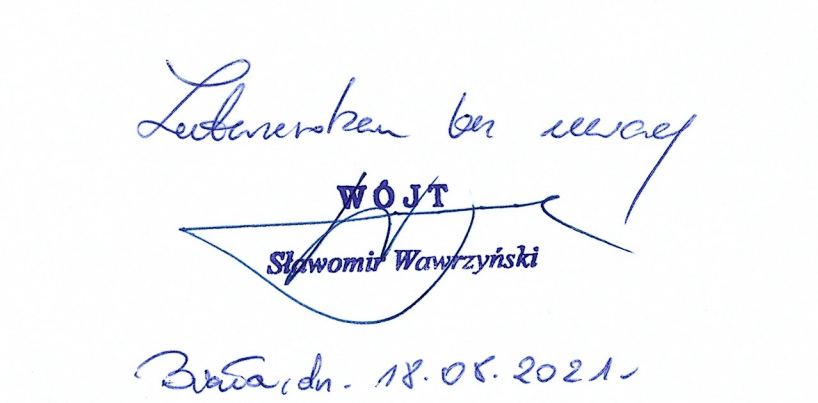 Zatwierdzam bez uwag
WÓJT
Sławomir Wawrzyński
Biała, dn. 18.08.2021r